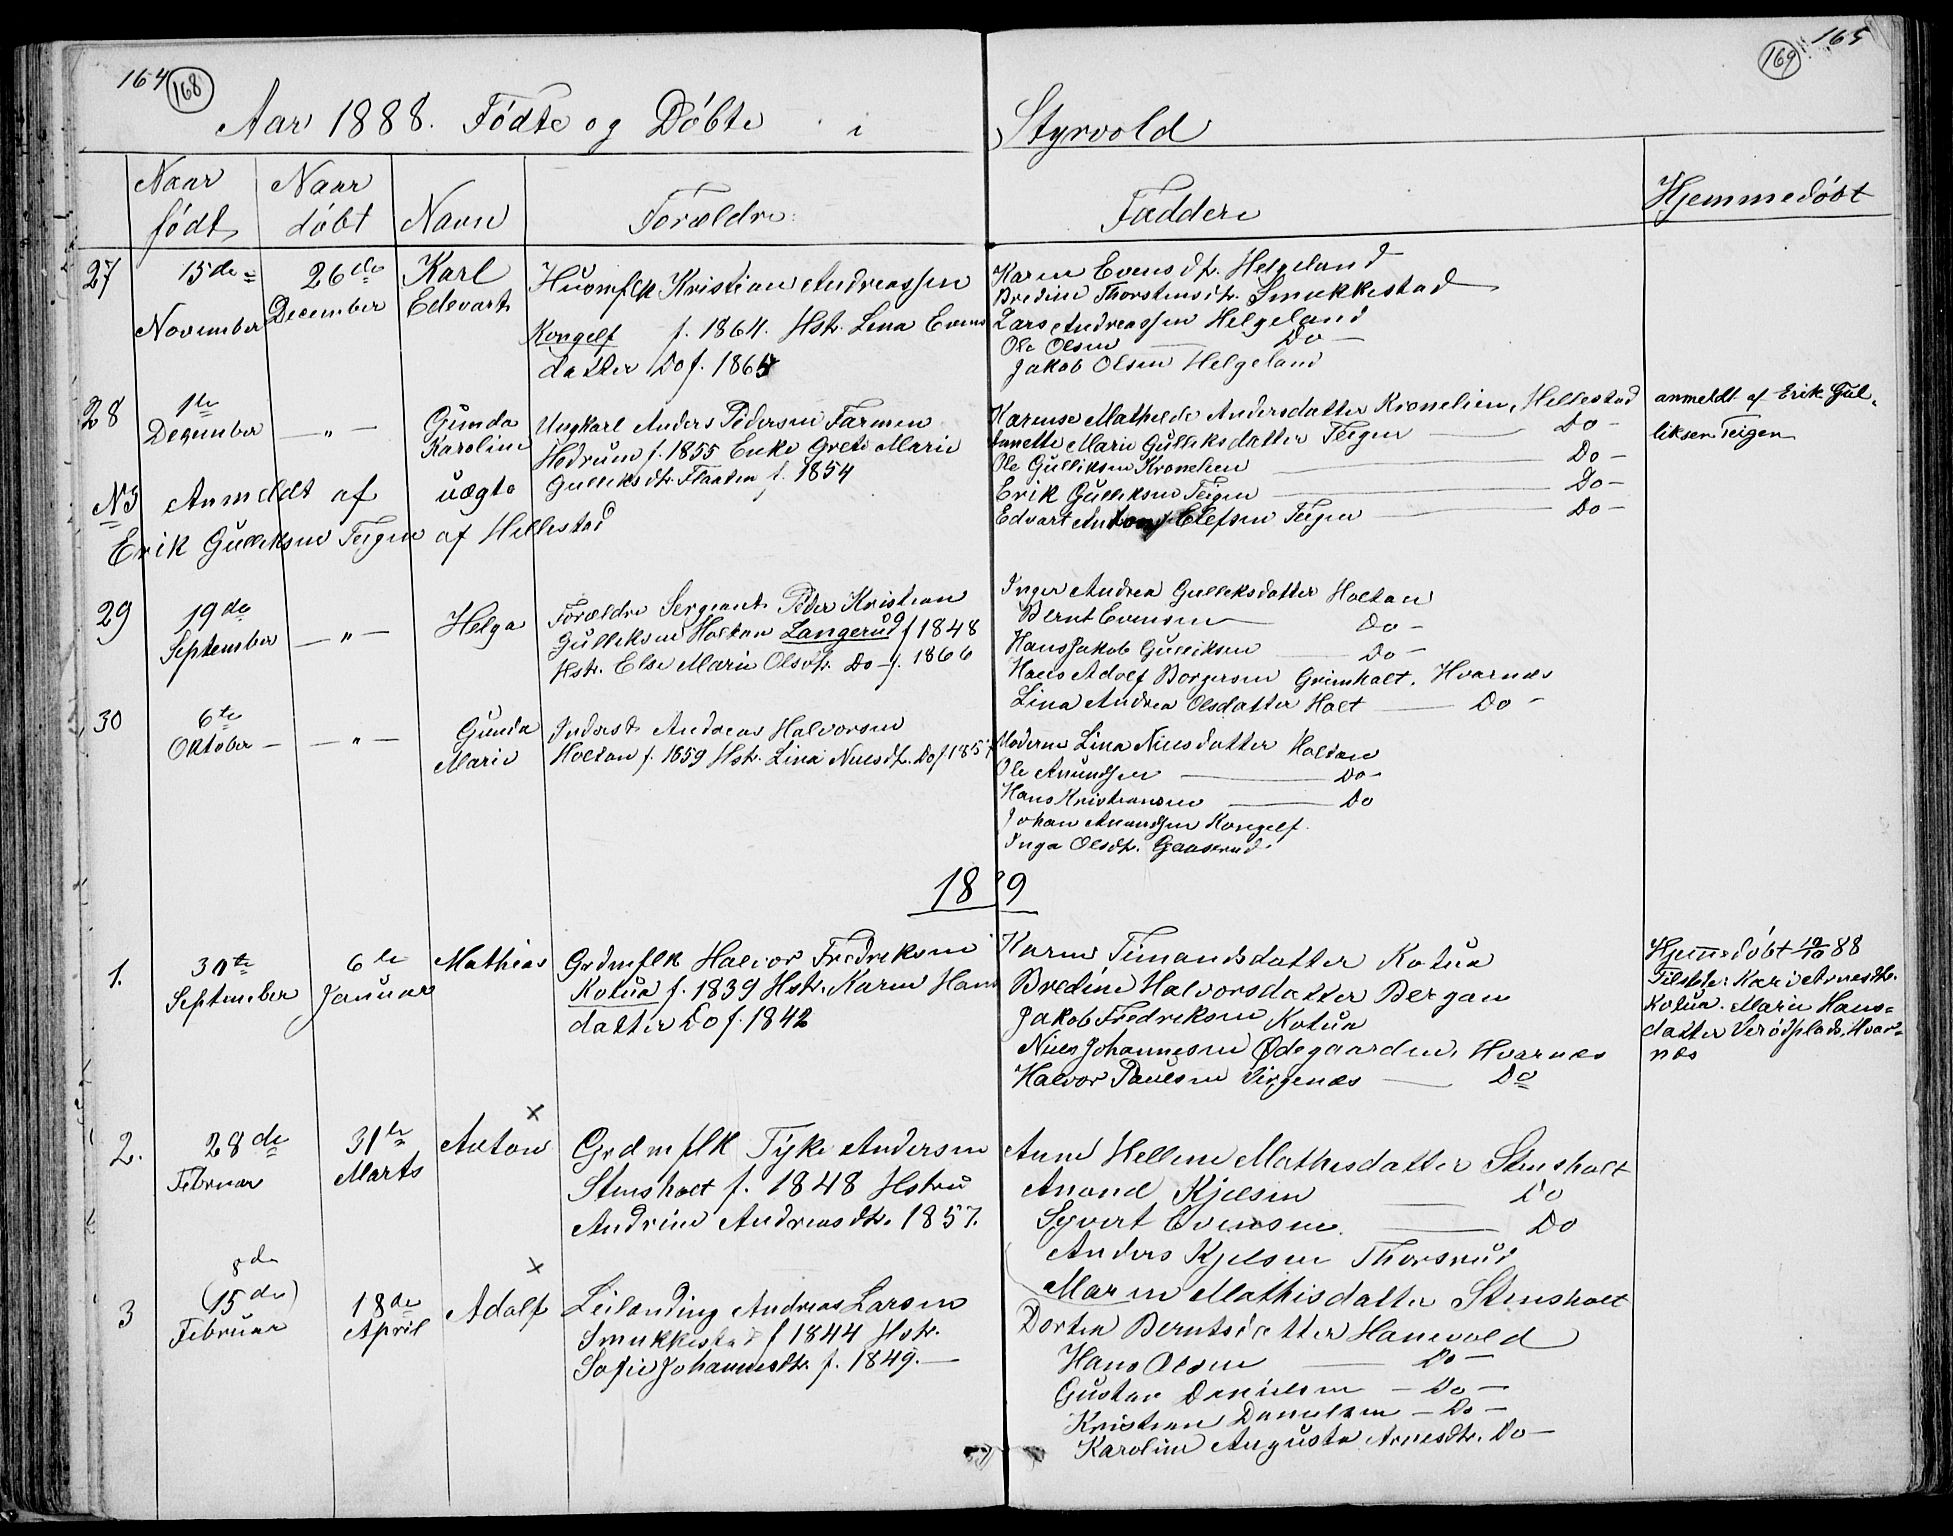 164 168
169 165
Aar 1888. Födte og Döbte i Styrvold
Naar födt
Naar döbt
Navn
Forældre
Faddere
Hjemmedöbt
27
15de November
26de December
Karl Edevart
Huusmflk Kristian Andreassen
Kongelf f. 1864. Hstr. Lina Evens
datter Do f. 1865
Karen Evensdt. Helgeland
Bredine Thorstensdtr. Smukkestad
Lars Andreassen Helgeland
Ole Olsen — Do —
Jakob Olsen Helgeland
28
1te December
— " —
Gunda Karoline
uægte
Ungkarl Anders Pedersen Farmen
Hedrum f. 1855 Enke Grete Marie
Gulliksdtr. Flaaten f. 1854
Karense Mathelde Andersdatter Kronelien, Hellestad
Janette Marie Gulliksdatter Teigen — Do —
Ole Gulliksen Kronelien — Do —
Erik Gulliksen Teigen — Do —
Edvart Anton Olefsen Teigen — Do —
anmeldt af Erik Gul-
liksen Teigen
NB Anmeldt af
Erik Gulliksen Teigen af Hellestad
29
19de September
— " —
Helga
Forældre Sergeant Peder Kristian
Gulliksen Holtan Langerud f 1848
Hstr. Else Marie Olsdtr. Do f. 1866
Inger Andrea Gulliksdatter Holtan
Bernt Evensen — Do —
Hans Jakob Gulliksen — Do —
Hans Adolf Borgersen Grimholt, Hvarnes
Lina Andrea Olsdatter Holt — Do —
30
6te Oktober —
— " —
Gunda Marie
Inderst Andreas Halvorsen
Holtan f. 1859 Hstr. Lina Nielsdtr. Do f 1857
Moderen Lina Nielsdatter Holtan
Ole Anundsen — Do —
Hans Kristiansen — Do
Johan Anundsen Kongelf.
Inga Olsdtr. Gaaserud.
1889
1.
30te September
6te Januar
Mathias
Grdmflk Halvor Fredriksen
Kotua f. 1839 Hstr. Karen Hans
datter Do f. 1842
Karen Timandsdatter Kotua
Bredine Halvorsdatter Bergan
Jakob Fredriksen Kotua
Niels Johannesen Ödegaarden, Hvarnes
Halvor Paulsen Virgenæs — Do
Hjemmedöbt 19/10 88
Tilstede: Kari Arnesdtr.
Kotua. Marie Hans-
datter Verödplads, Hvar-
næs
2.
28de Februar
31te Marts
×
Anton
Grdmflk Tyke Andersen
Stensholt f. 1848 Hstru
Andrine Andreasdtr. 1857.
Anne Hellene Mathisdatter Stensholt
Anond Kjelsen — Do
Syvert Evensen — Do
Anders Kjelsen Thorsrud
Maren Mathisdatter Stensholt
3
8de
(15de) Februar
18de April
×
Adolf
Leilending Andreas Larsen
Smukkestad f 1844 Hstr.
Sofie Johannesdtr. f. 1849. —
Dorten Berntsdatter Hanevold
Hans Olsen Do —
Gustav Danielsen — Do —
Kristian Danielsen — Do —
Karoline Augusta Arnesdtr. Do —